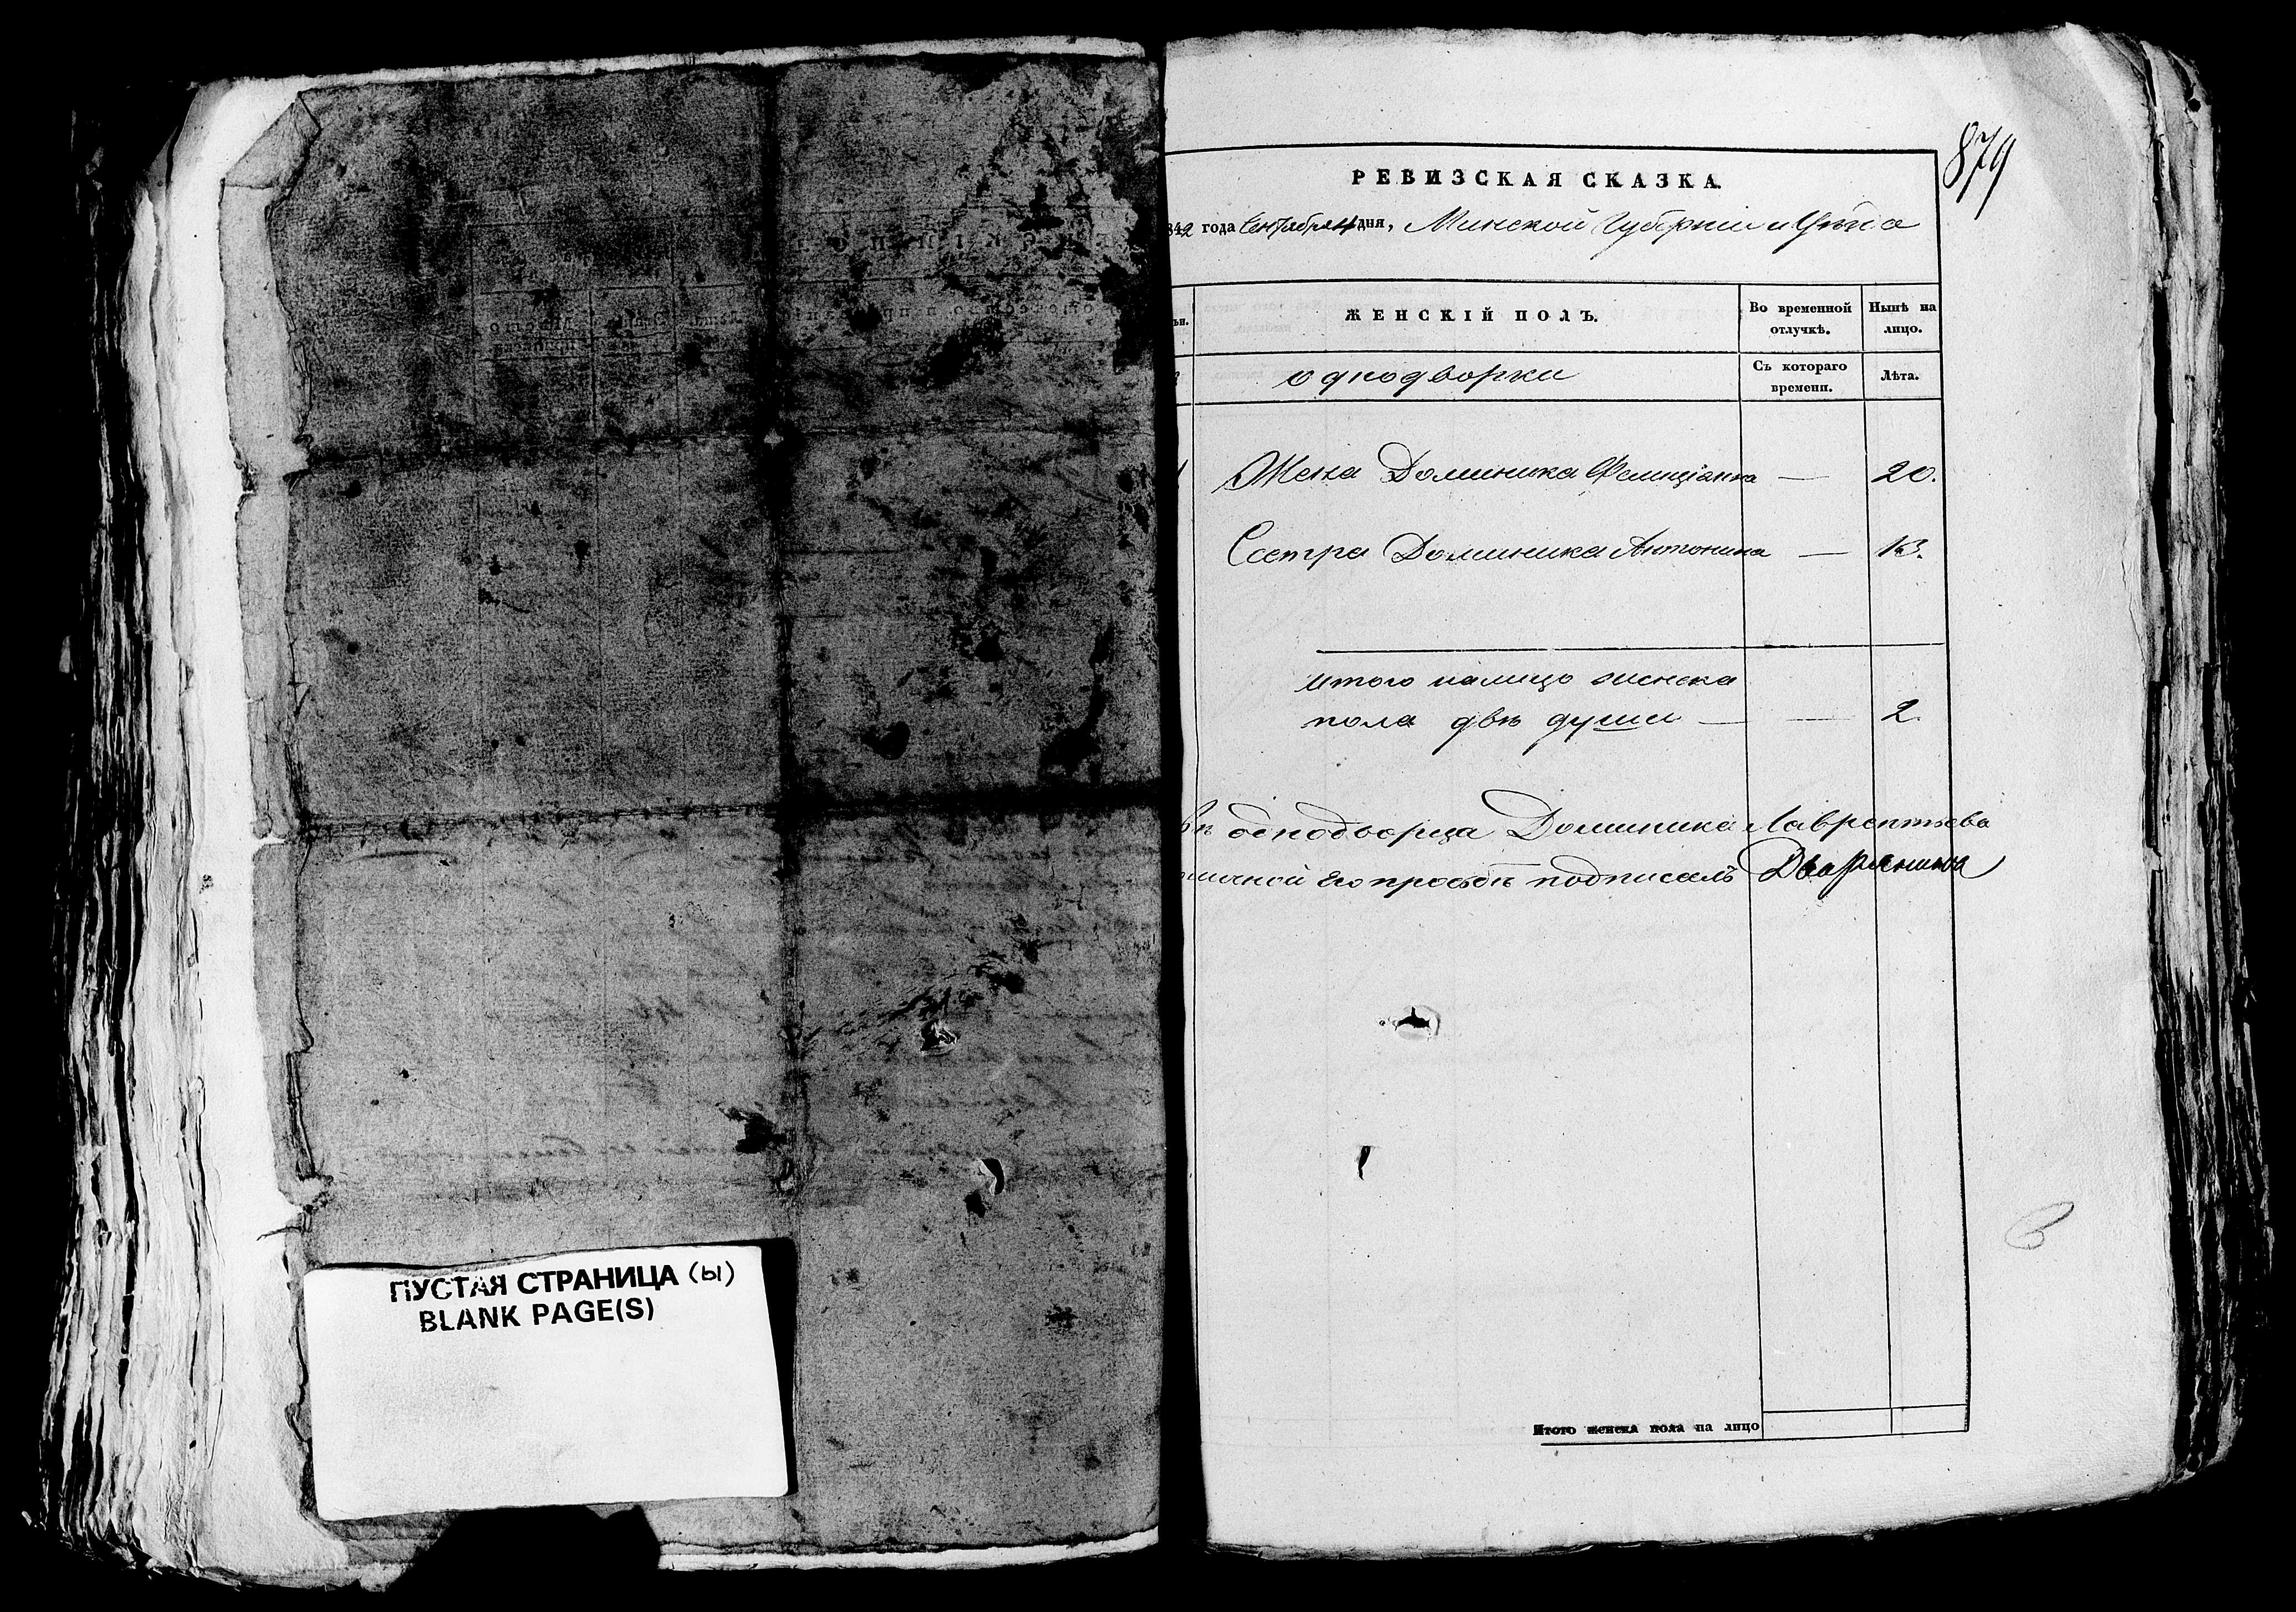 879
РЕВИЗСКАЯ СКАЗКА.
842 года Сентября 4 дня, Минской Губерніи и Уѣзда
ЖЕНСКІЙ ПОЛЪ.
Во временной отлучкѣ.
Нынѣ на лицо.
однодворки
Съ котораго времени.
Лѣта.
Жена Доминика Фелиціанна — 20.
Сестра Доминика Антонина — 13.
Итого налицо женска
пола двѣ души — — 2.
однодворца Доминика Лаврентьева
личной его прозьбѣ подписалъ Дворянинъ
Итого женска пола на лицо
ПУСТАЯ СТРАНИЦА (Ы)
BLANK PAGE(S)